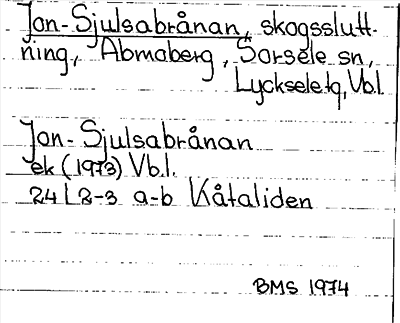 Jon-Sjulsabrånan, skogsslutt-
ning, Abmoberg, Sorsele sn,
Lyckseletg, Vb.l
Jon-Sjulsabrånan
ek (1973) Vb.l.
24 I 2-3 a-b Kåtaliden
BMS 1974